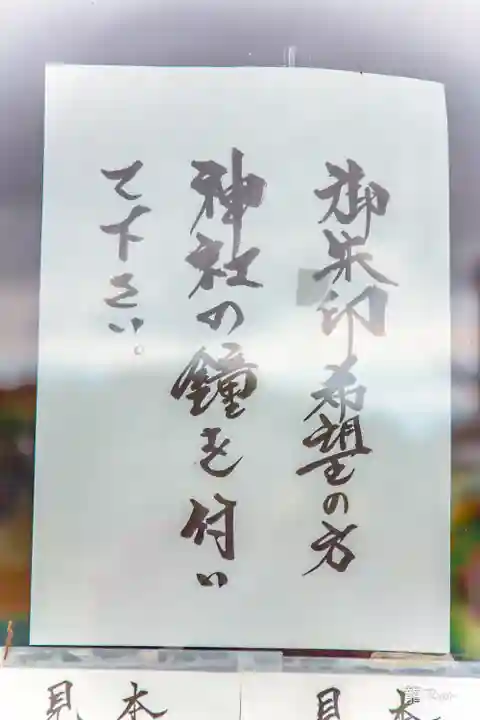 御朱印希望の方
神社の鐘を付い
て下さい。
見本
見本
龍